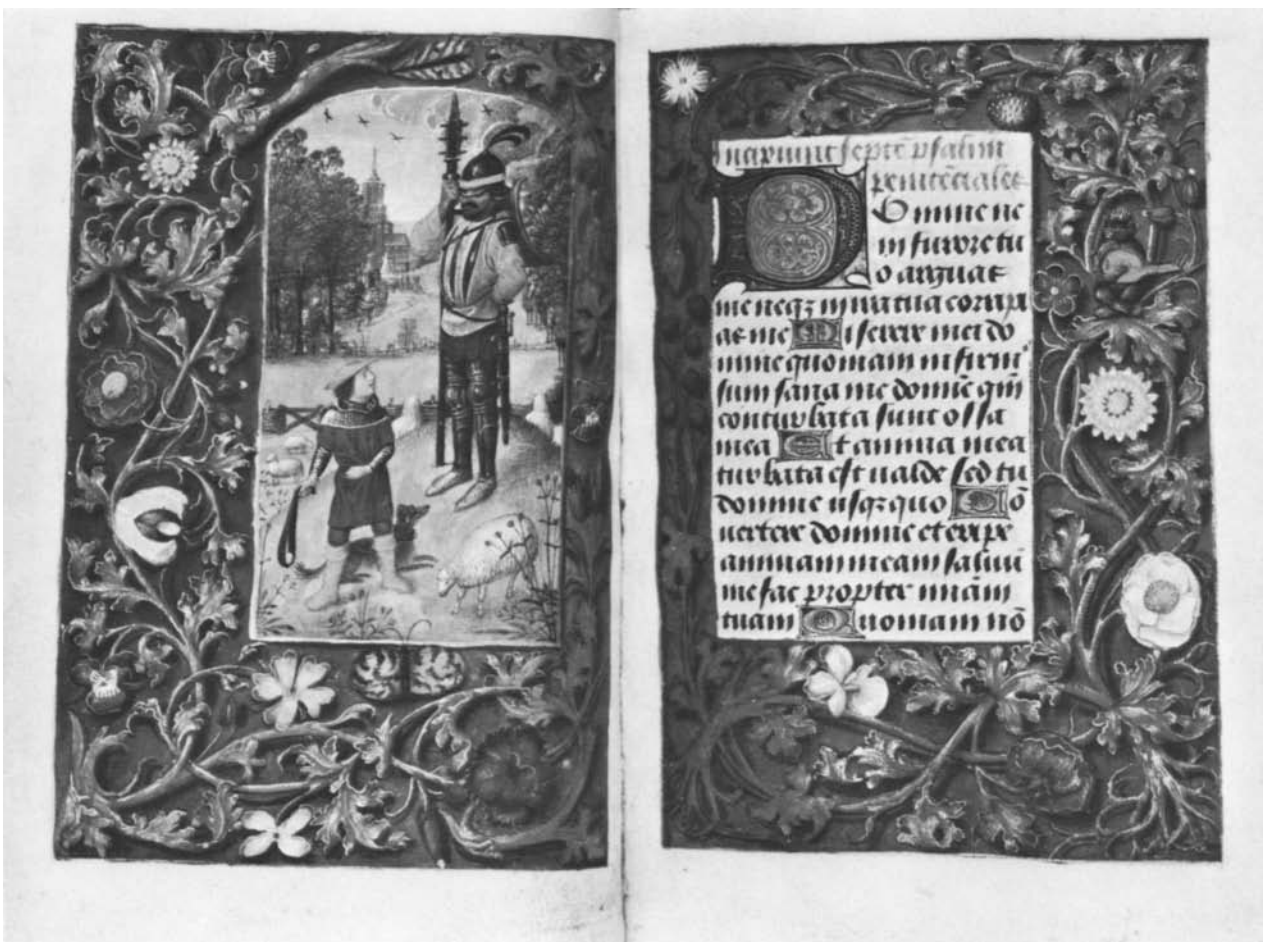 Incipiunt septē psalmi
penitēciales
Domine ne
in furore tu
o arguas
me neqz in ira tua corripi
as me Miserere mei do
mine quoniam infirmꝰ
sum sana me domīe qm̄
conturbata sunt ossa
mea Et anima mea
turbata est ualde sed tu
domine usqz quo Cō
uertere domine et eripe
animam meam saluū
me fac propter miām
tuam Quoniam nō